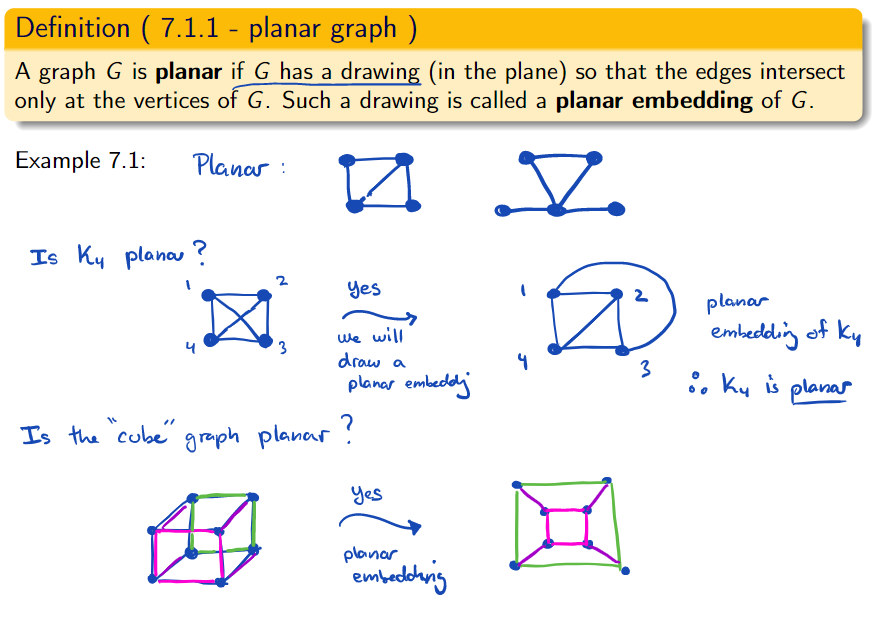 Definition ( 7.1.1 - planar graph )
A graph G is planar if G has a drawing (in the plane) so that the edges intersect
only at the vertices of G. Such a drawing is called a planar embedding of G.
Example 7.1:
Planar :
Is K4 planar ?
1
2
4
3
yes
we will
draw a
planar embeddj
1
2
4
3
planar
embedding of K4
∴ K4 is planar
Is the "cube" graph planar ?
yes
planar
embedding